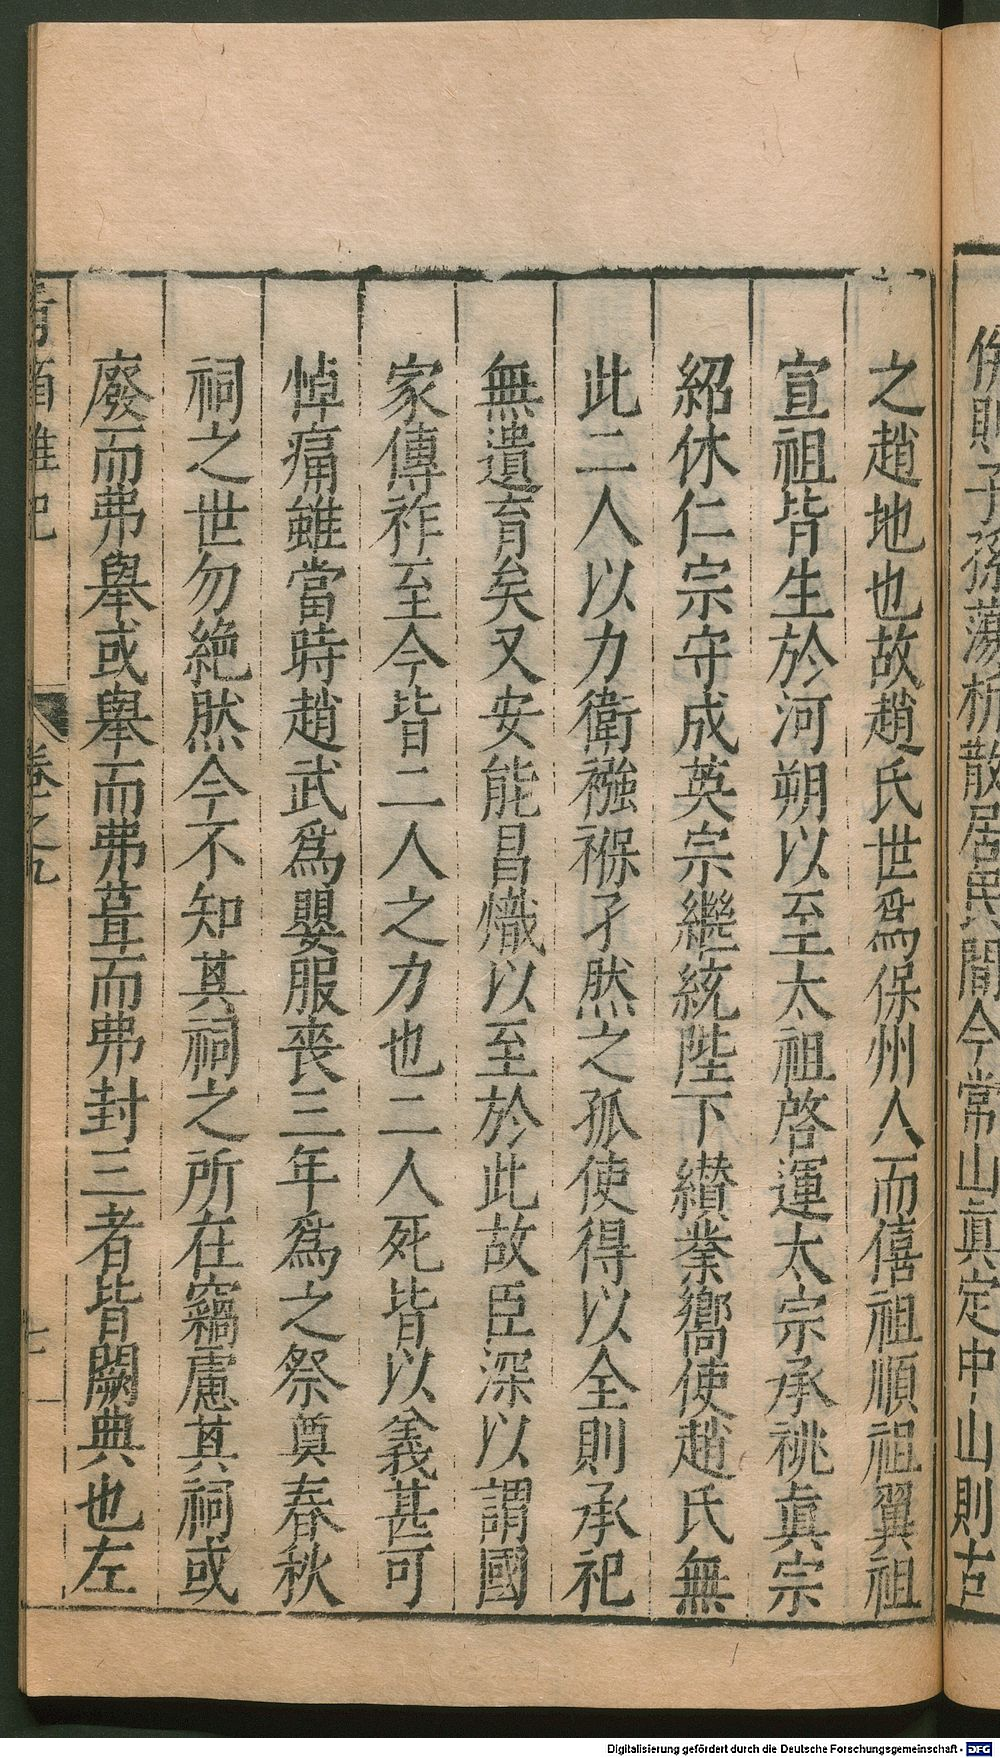 併則子孫蕩析散居民間今常山眞定中山則古
之趙地也故趙氏世爲保州人而僖祖順祖翼祖
宣祖皆生於河朔以至太祖啓運太宗承祧眞宗
紹休仁宗守成英宗繼統陛下纉業嚮使趙氏無
此二人以力衛襁褓孑然之孤使得以全則承祀
無遺育矣又安能昌熾以至於此故臣深以謂國
家傳祚至今皆二人之力也二人死皆以義甚可
悼痛雖當時趙武爲嬰服喪三年爲之祭奠春秋
祠之世勿絶然今不知其祠之所在竊慮其祠或
廢而弗舉或舉而弗葺而弗封三者皆闕典也左
青箱雜記 卷之九 七
Digitalisierung gefördert durch die Deutsche Forschungsgemeinschaft - DFG